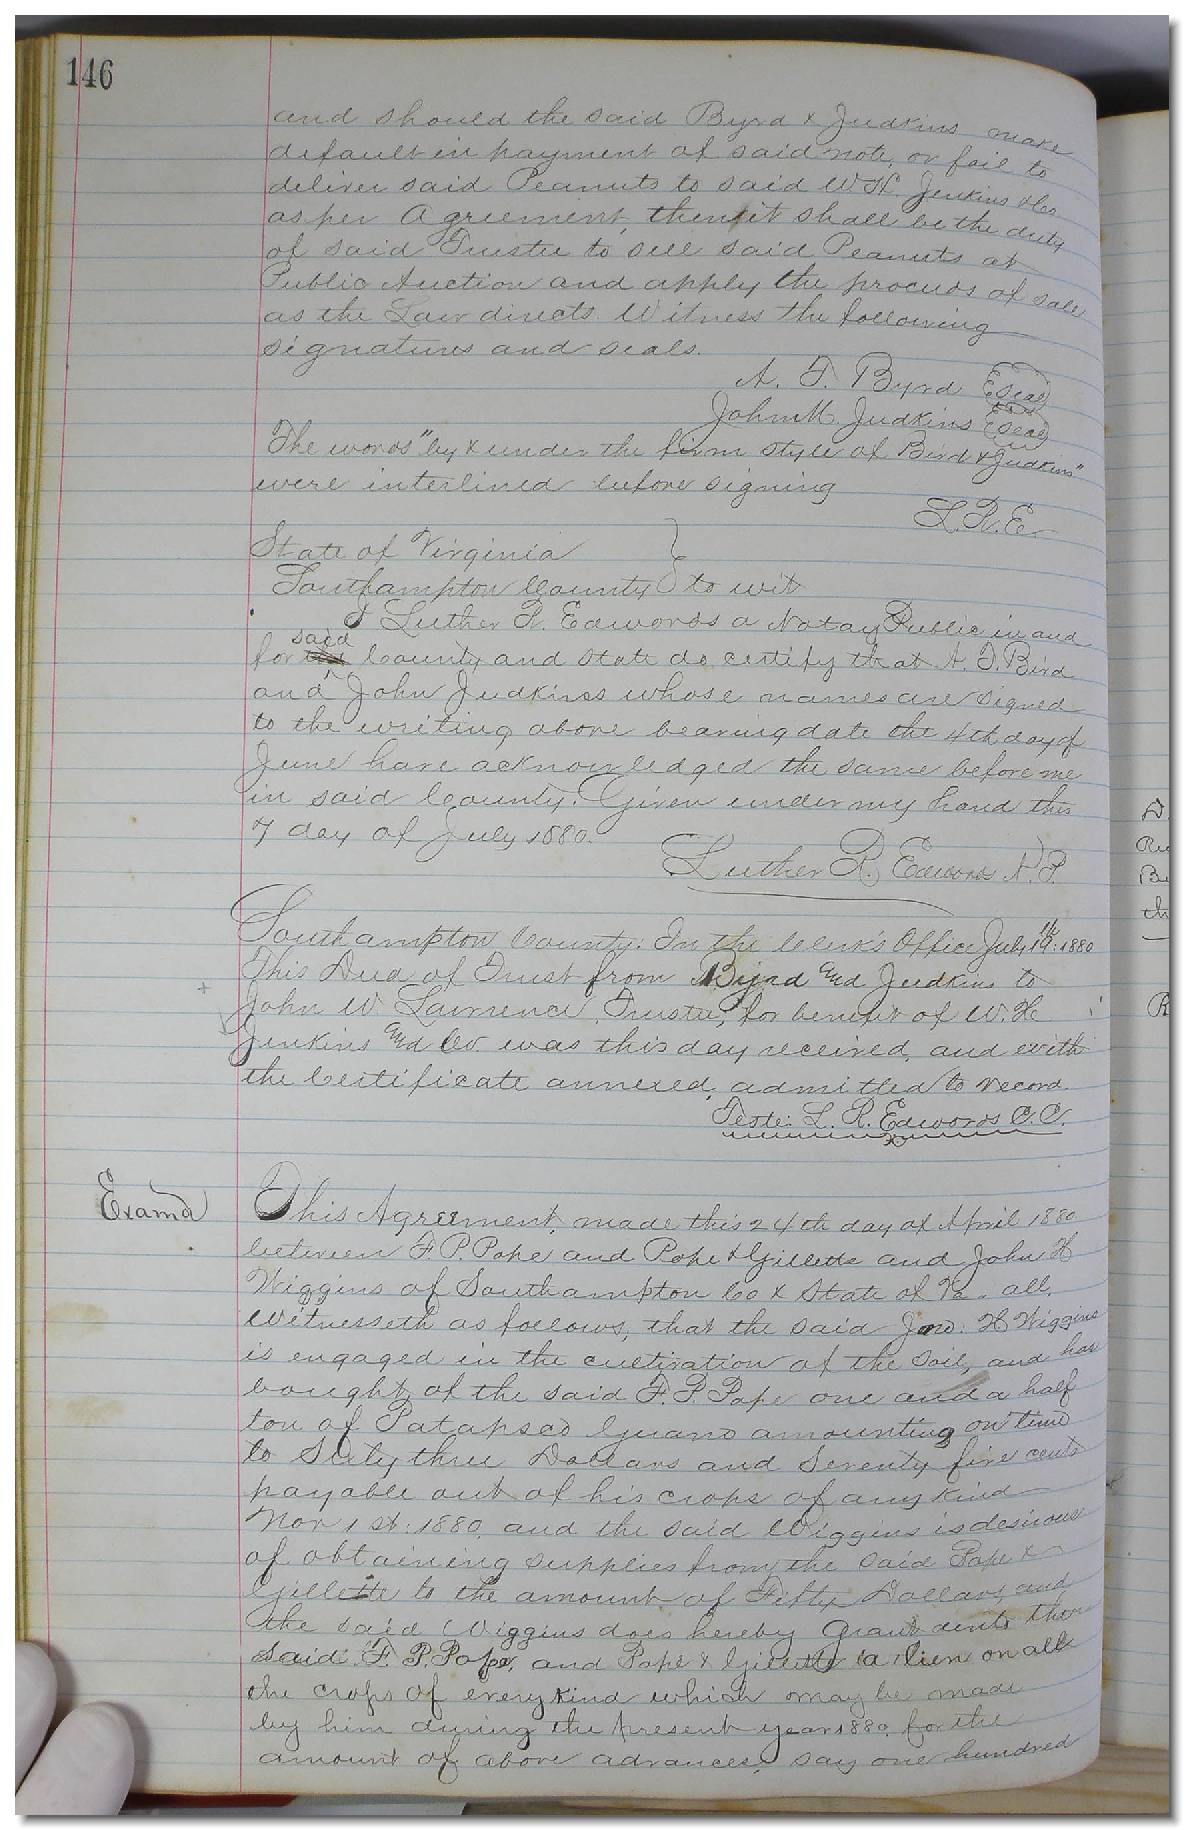 146
and should the said Byrd & Judkins make
default in payment of said note, or fail to
deliver said Peanuts to said W. H. Jenkins & Co
as per Agreement, then it shall be the duty
of said Trustee to sell said Peanuts at
Public Auction and apply the proceeds of sale
as the Law directs. Witness the following
signatures and seals.
A. T. Byrd Seal
John M. Judkins Seal
The words "by & under the firm style of Bird & Judkins"
were interlined before signing
L.R.E.
State of Virginia
Southampton County to wit
I Luther R. Edwards a Notay Public in and
said
for County and State do certify that A. T. Bird
and John Judkins whose names are signed
to the writing above bearing date the 4th day of
June have acknowledged the same before me
in said County. Given under my hand this
7 day of July 1880.
Luther R. Edwards N.P.
Southampton County: In the Clerk's Office July 19th: 1880
This Deed of Trust from Byrd and Judkins to
John W. Lawrence, Trustee, for benefit of W. H
Jenkins and Co. was this day received, and with
the Certificate annexed, admitted to record.
Teste: L. R. Edwards C.C.
Examd
This Agreement, made this 24th day of April 1880
between F. P. Pope and Pope & Gillette and John H
Wiggins of Southampton Co & State of Va. all,
Witnesseth as follows, that the said Jno. H Wiggins
is engaged in the cultivation of the soil, and has
bought of the said F. P. Pope one and a half
ton of Patapsco Guano amounting on time
to Sixty three Dollars and Seventy five cents
payable out of his crops of any kind
Nov 1st: 1880, and the said Wiggins is desirous
of obtaining supplies from the said Pope &
Gillette to the amount of Fifty Dollars, and
the said Wiggins does hereby Grant unto the
said F. P. Pope, and Pope & Gillette a lien on all
the crops of every kind which may be made
by him during the present year 1880, for the
amount of above advances, say one hundred